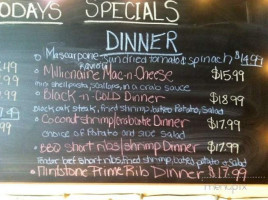 TODAYS SPECIALS
DINNER
• Mascarpone-sundried tomato & spinach $14.99
ravioli
• Millionaire Mac-n-Cheese $15.99
shellpasta, scallops, in a crab sauce
• Black-n-Gold Dinner $18.99
black oak steak, fried shrimp, baked Potato, Salad
• Coconut shrimp/crabcake Dinner $17.99
choice of Potato and side Salad
• BBQ short ribs/shrimp Dinner $17.99
tender beef short ribs, fried shrimp, baked potato & salad
• Flintstone Prime Rib Dinner $17.99
49
99